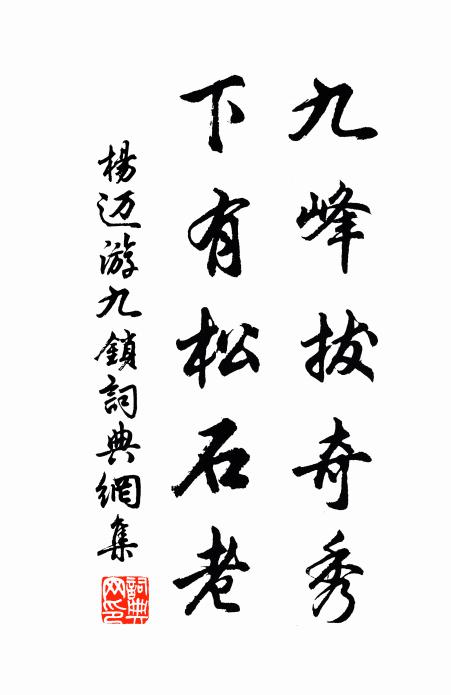 九峰拔奇秀
下有松石老
楊迈游九鎖詞典網集
詞典网印